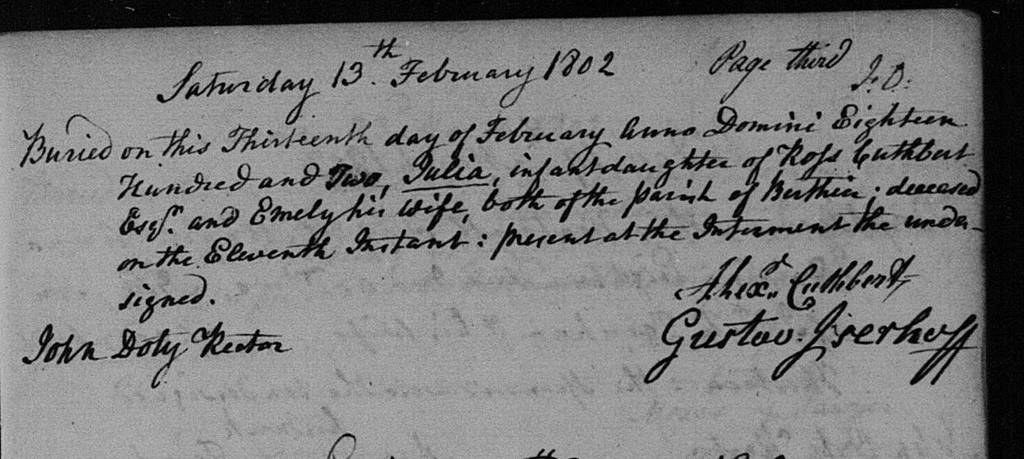 Saturday 13.th February 1802 Page third
J: D:
Buried on this Thirteenth day of February Anno Domini Eighteen
Hundred and Two, Julia, infant daughter of Ross Cuthbert
Esqr. and Emely his wife, both of the parish of Berthier; deceased
on the Eleventh Instant: present at the Interment the under-
signed.
Alexr. Cuthbert
John Doty Rector
Gustav. Iserhoff